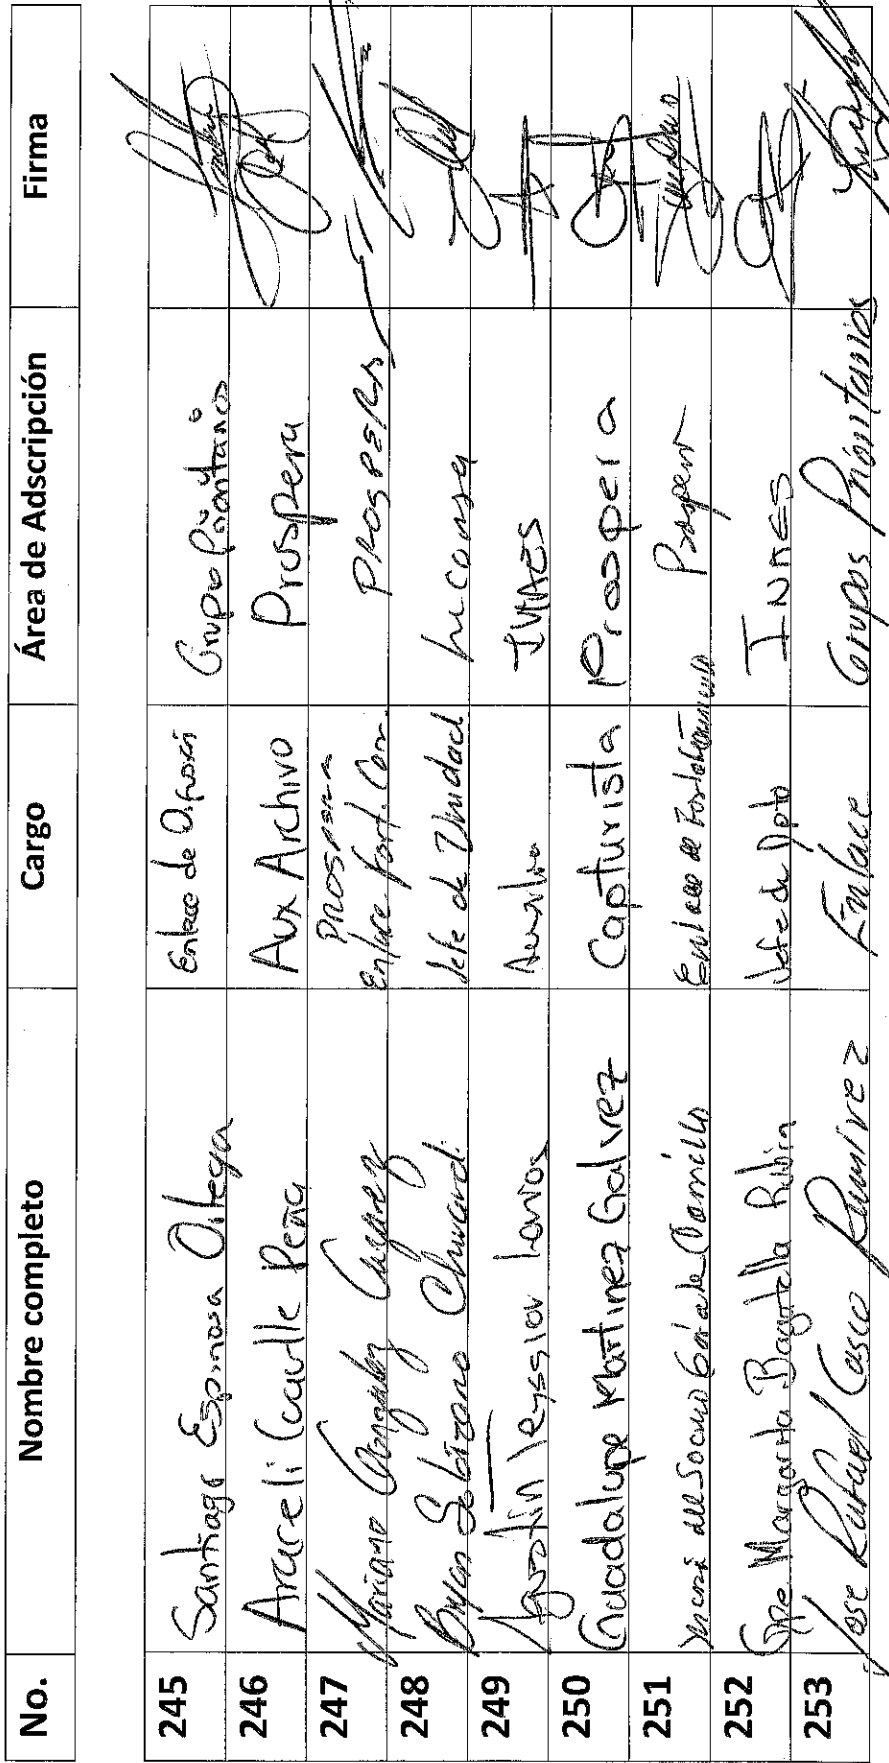 No. Nombre completo Cargo Área de Adscripción Firma
245 Santiago Espinosa Ortega Enlace de Difusión Grupo Prioritario
246 Araceli Peña Aux Archivo Prospera
247 Mariano Gonzalez Prospera Enlace Fort. Com PROSPERA
248 Bryan Solorzano Jefe de Unidad Liconsa
249 Agustin Teyssier Larios Auxiliar INAES
250 Guadalupe Martinez Galvez Capturista Prospera
251 Maria del Socorro Enlace de Fortalecimiento Prospera
252 Gpe Margarita Rubin Jefe de Dpto INAES
253 Jose Rafael Casco Ramirez Enlace Grupos Prioritarios